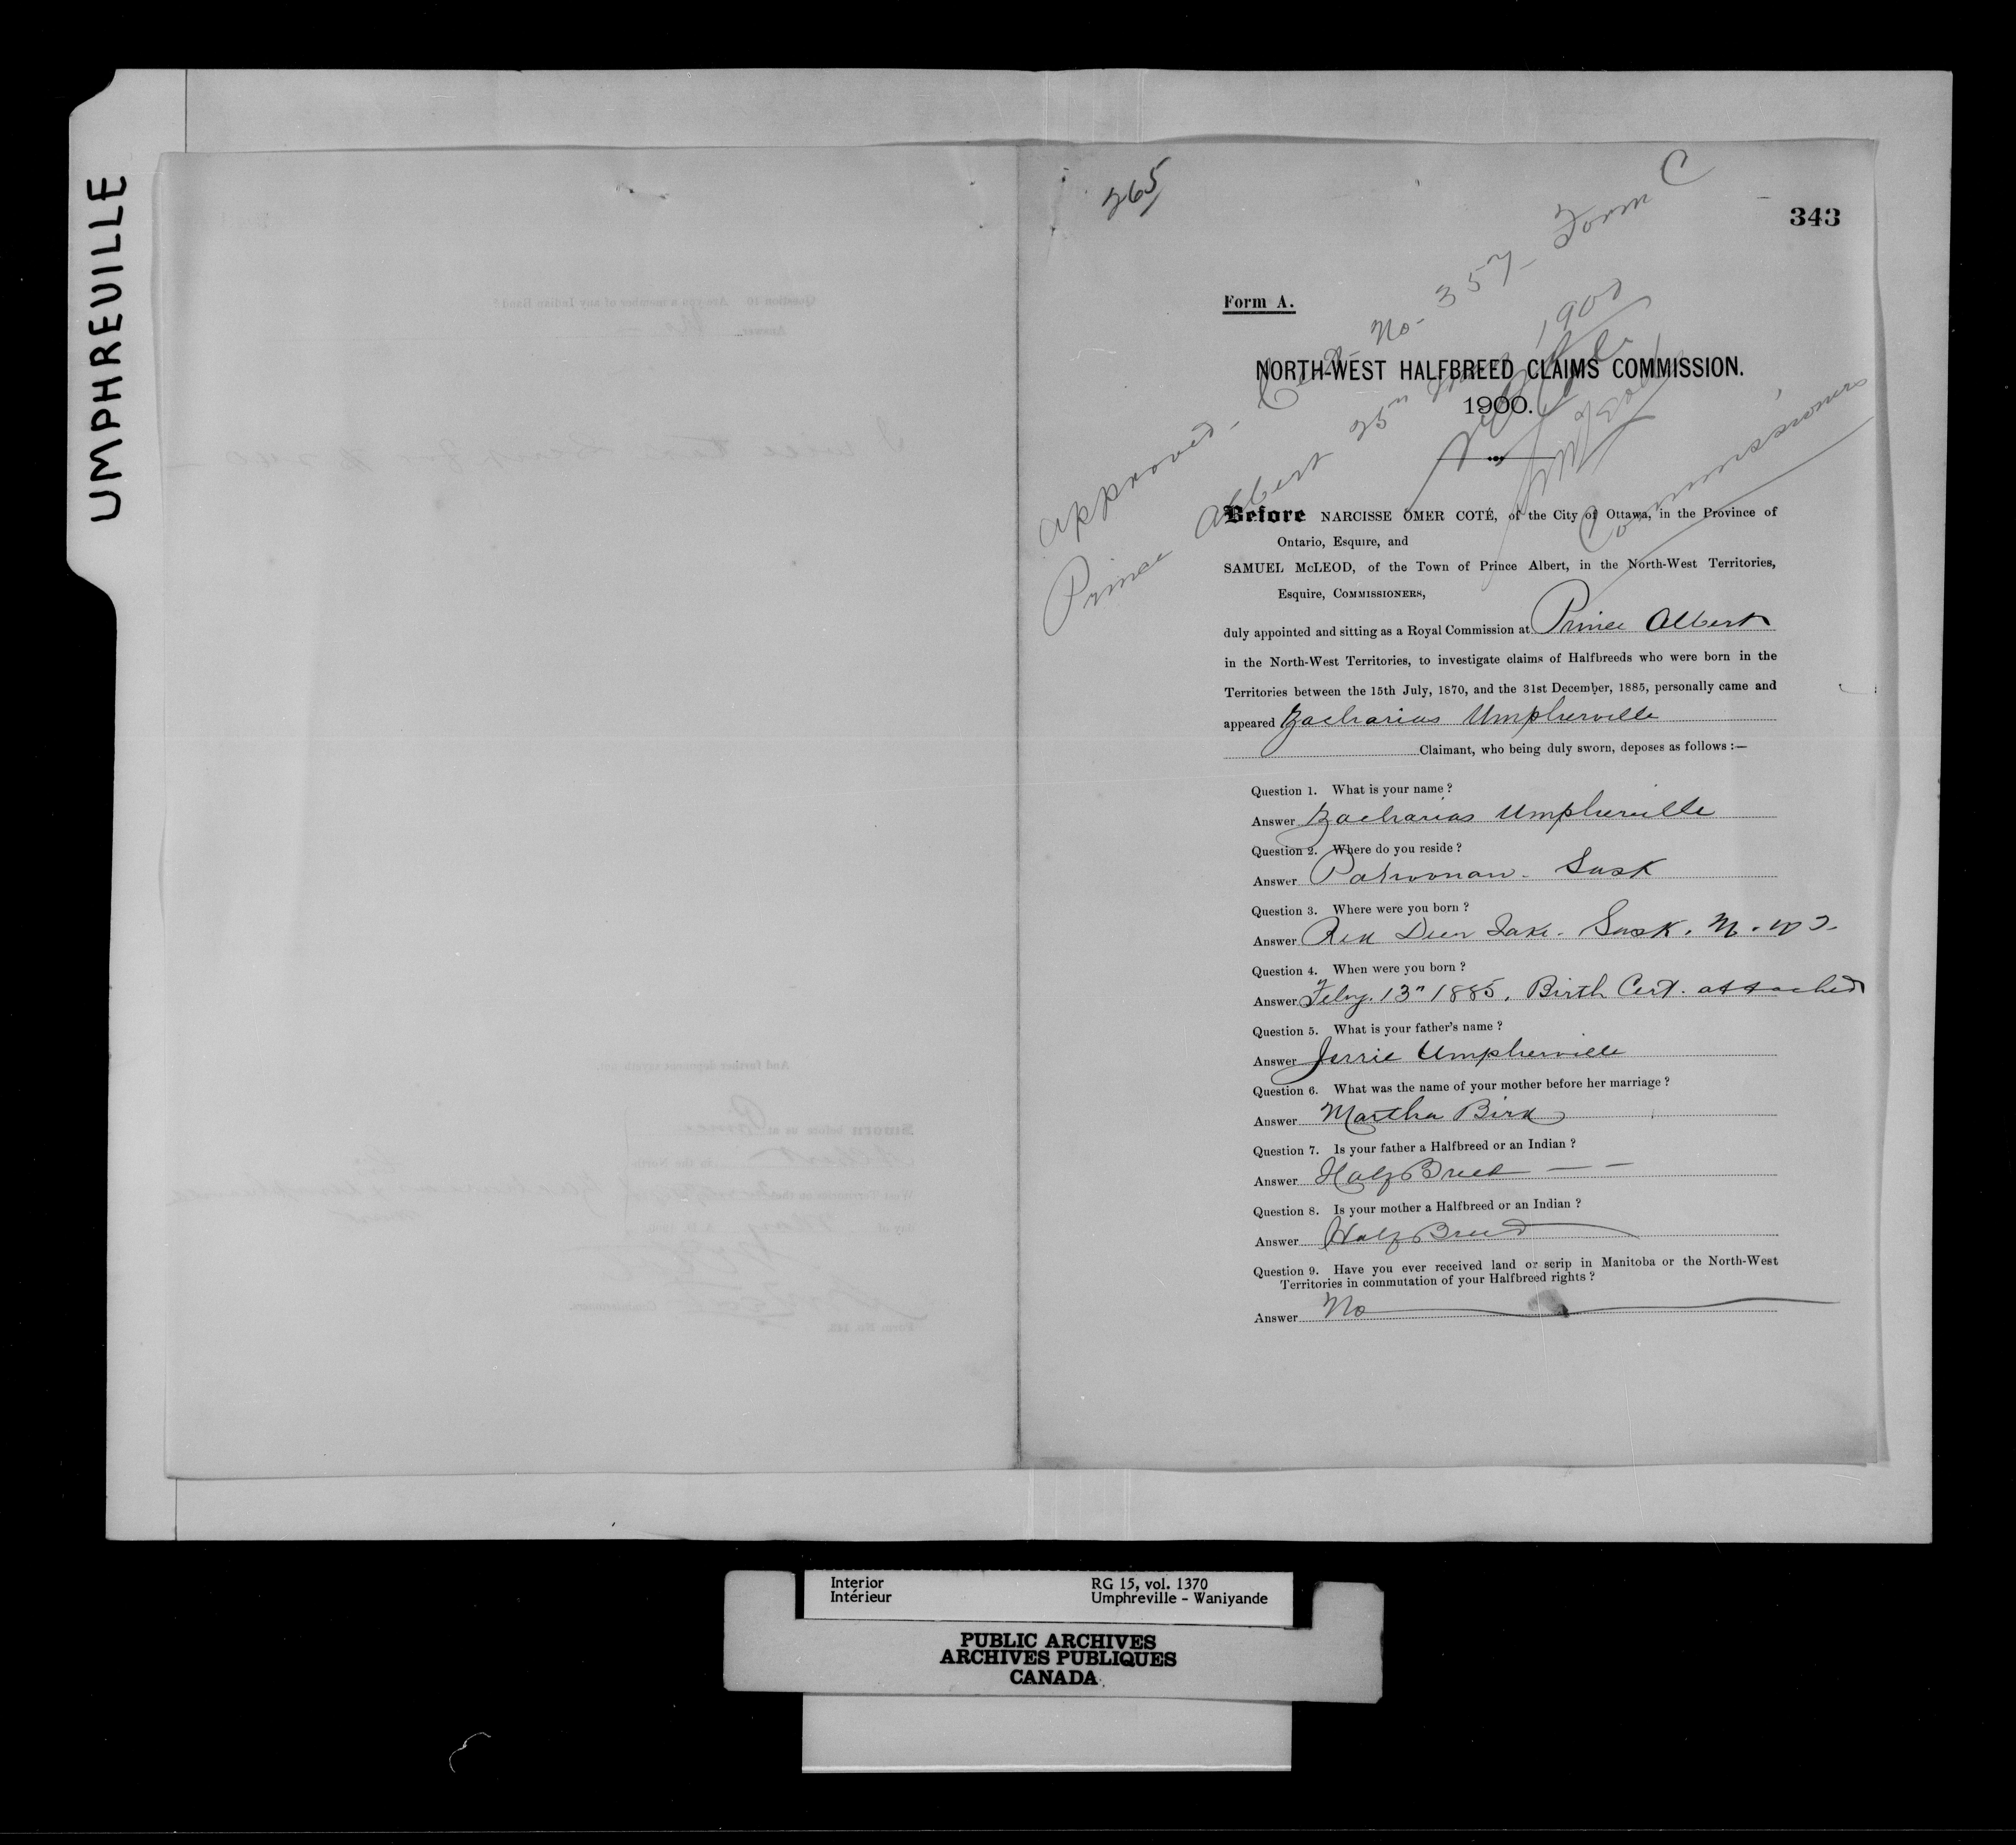 UMPHREVILLE
265
343
Form A.
approved - Cert. No. 357 - Form C
Prince Albert 25th 1900
Commissioners
NORTH-WEST HALFBREED CLAIMS COMMISSION.
1900.
Before NARCISSE OMER COTÉ, of the City of Ottawa, in the Province of
Ontario, Esquire, and
SAMUEL McLEOD, of the Town of Prince Albert, in the North-West Territories,
Esquire, COMMISSIONERS,
duly appointed and sitting as a Royal Commission at Prince Albert
in the North-West Territories, to investigate claims of Halfbreeds who were born in the
Territories between the 15th July, 1870, and the 31st December, 1885, personally came and
appeared Zacharias Umpherville
Claimant, who being duly sworn, deposes as follows :—
Question 1. What is your name ?
Answer Zacharias Umpherville
Question 2. Where do you reside ?
Answer Pahwonan - Sask
Question 3. Where were you born ?
Answer Red Deer Lake - Sask. N. W T.
Question 4. When were you born ?
Answer Feby. 13" 1885. Birth Cert. attached
Question 5. What is your father's name ?
Answer Jerrie Umpherville
Question 6. What was the name of your mother before her marriage ?
Answer Martha Bird
Question 7. Is your father a Halfbreed or an Indian ?
Answer Half Breed — —
Question 8. Is your mother a Halfbreed or an Indian ?
Answer Half Breed
Question 9. Have you ever received land or scrip in Manitoba or the North-West
Territories in commutation of your Halfbreed rights ?
Answer No
Interior
Intérieur
RG 15, vol. 1370
Umphreville - Waniyande
PUBLIC ARCHIVES
ARCHIVES PUBLIQUES
CANADA